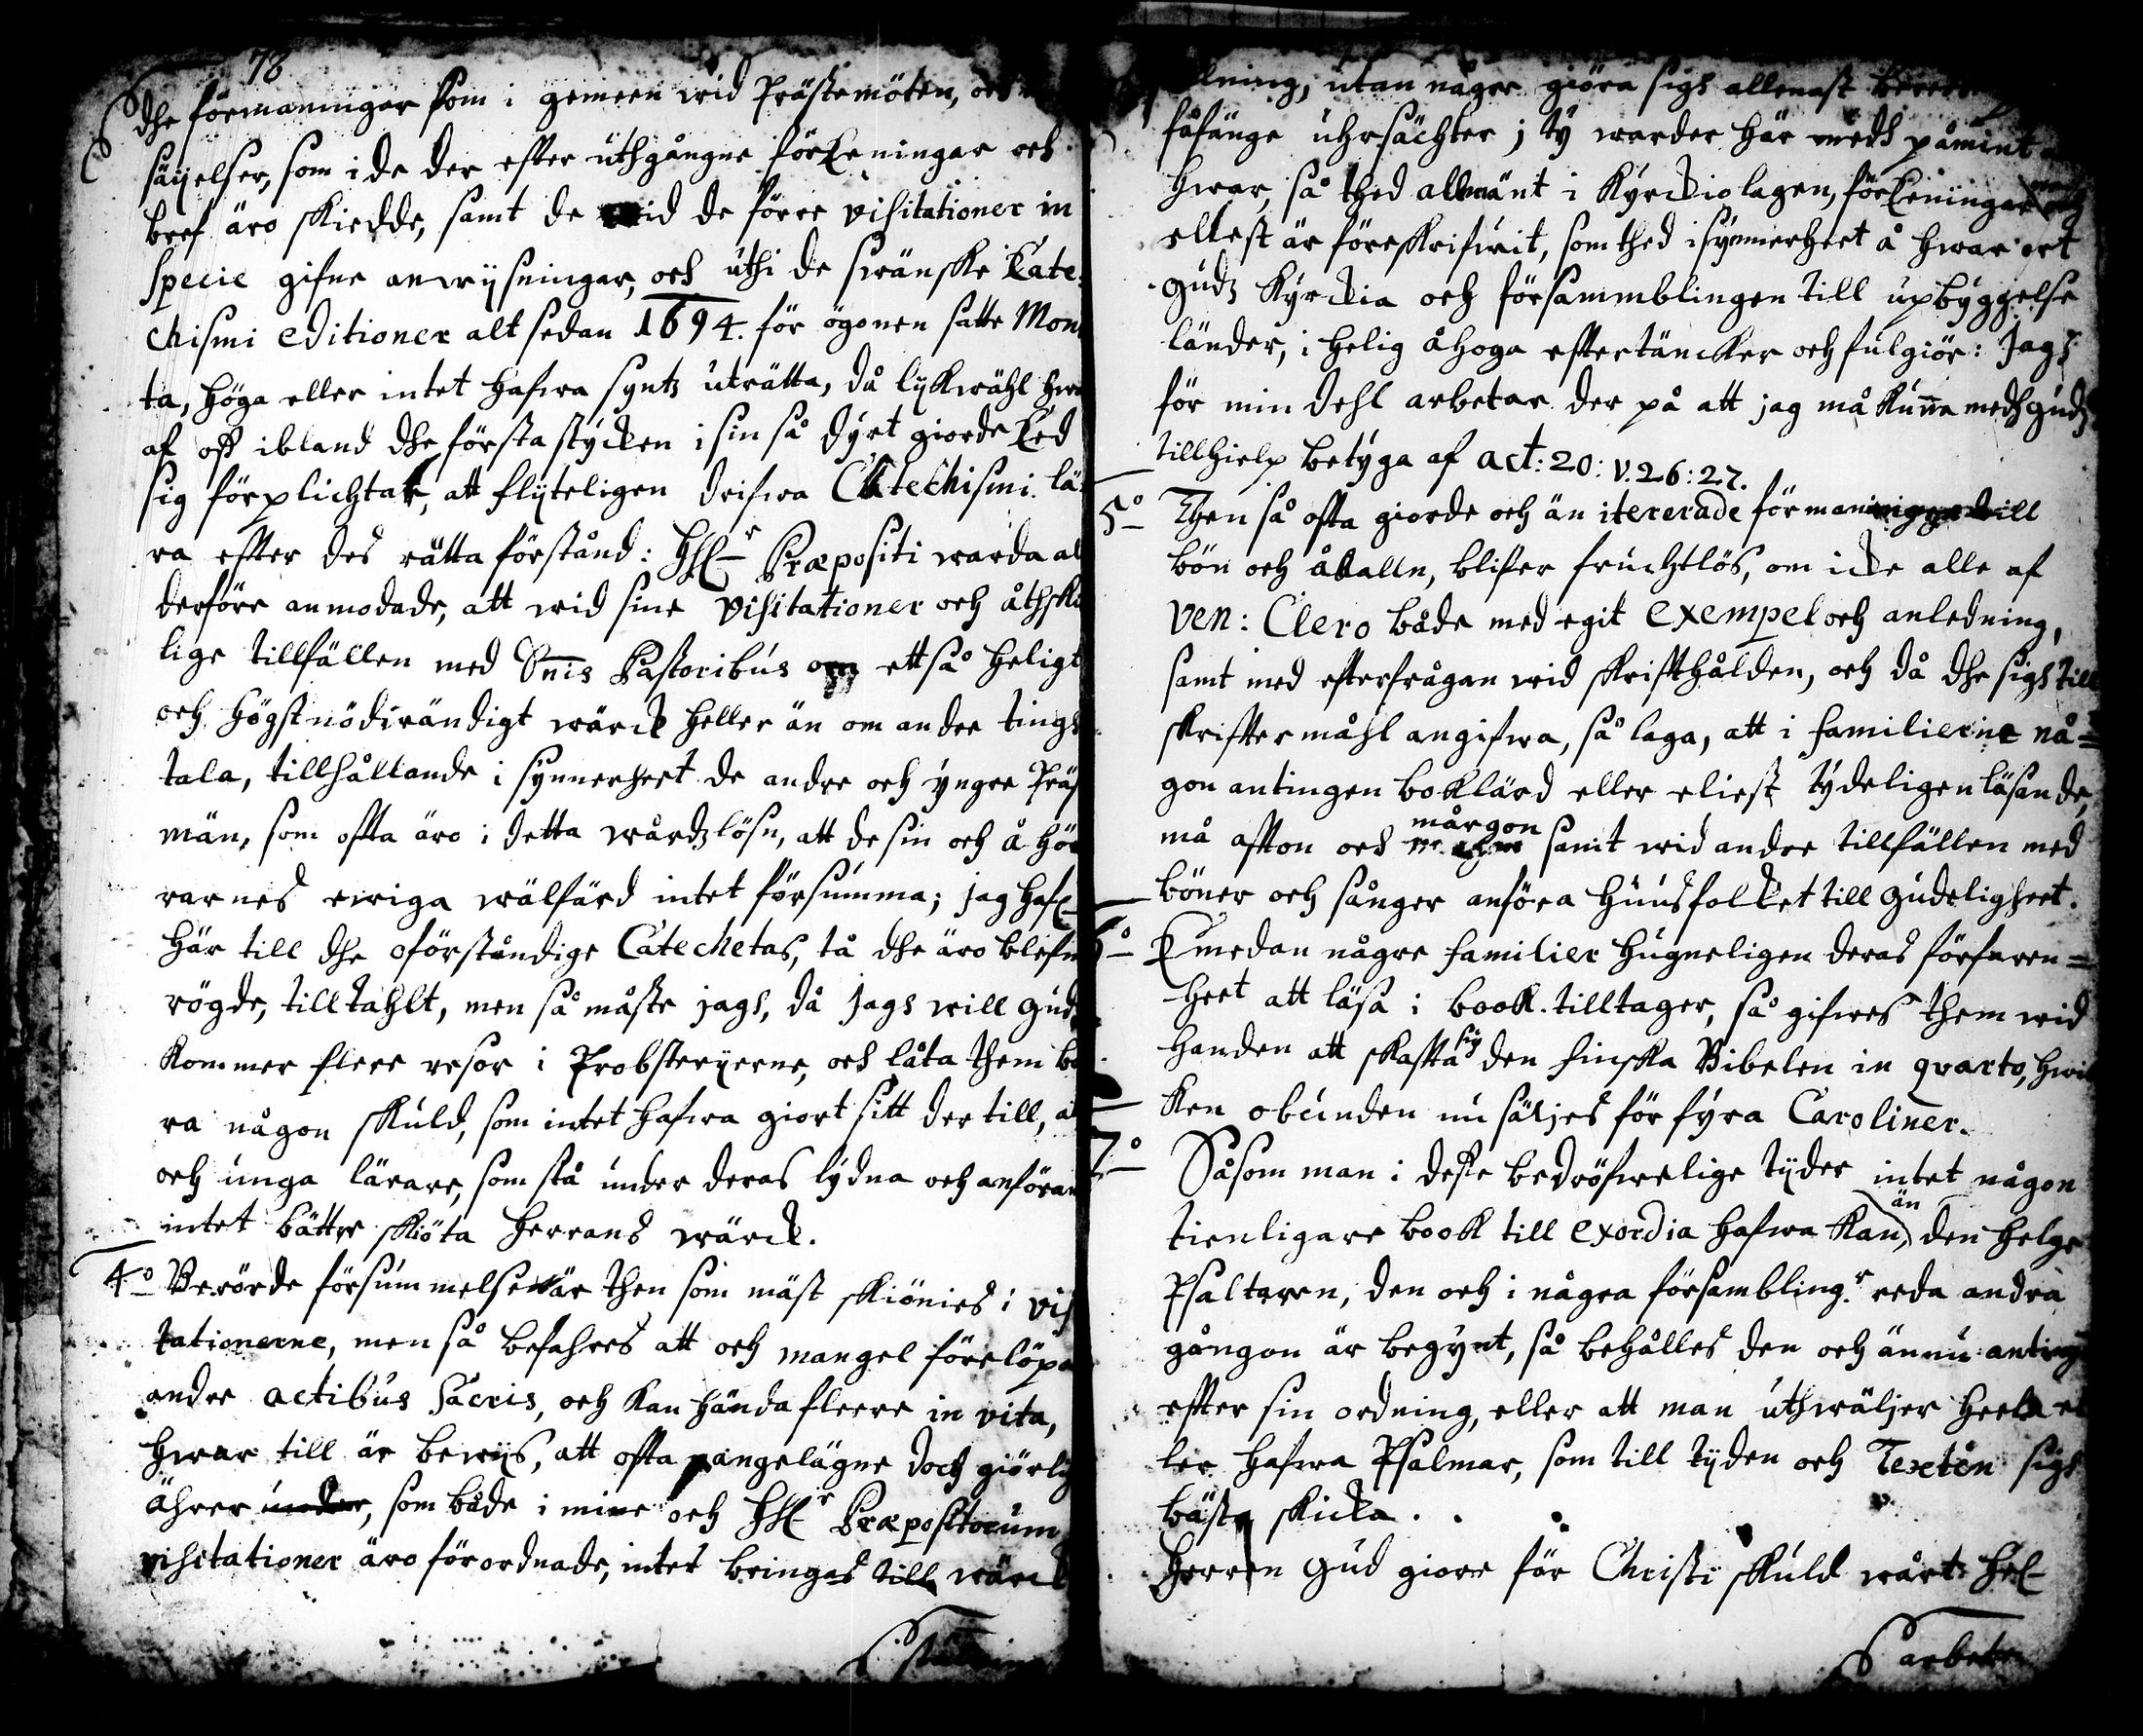 78
dhe förmaningar som i gemeen wid Prästemöten, och
säijelser, som i de der effter uthgångne förEeningar och
bref äro skiedde, samt de wid de förre visitationer in
specie gifne anwijsningar, och uthi de swänske Cate=
chismi editioner alt sedan 1694. för ögonen satte Mon
ta, höga eller intet hafwa syntz uträtta, då lijkwähl hwa
af oss ibland dhe första stycken i sin så dyrt giorde Eed
sig förplichtat, att flijteligen drifwa Catechismi lä=
ra efter des rätta förstånd: HH:r Præpositi warda al
derföre anmodade, att wid sine visitationer och åthski
lige tillfällen med Dnnis Pastoribus om ett så heligt
och högstnödwändigt wärck heller än om andre tingh
tala, tillhållande i synnerheet de andre och yngre Präs
män, som offta äro i detta wårdzlöse, att de sin och åhö
rarnes ewiga wälfärd intet försumma; jag hafr
här till dhe oförståndige Catechetas, tå dhe äro blefne
rögde, till tahlt, men så måste jagh, då Jagh will Gud
kommer flere resor i Probsterijerne, och låta them bä
ra någon skuld, som intet hafwa giort sitt der till, at
och unga lärare, som stå under deras lydna och anföran
intet bättre skiöta Herrans wärck.
4:o Berörde försummelse är then som mäst skiönies i visi
tationerne, men så befahres att och mangel förelöpa
andre actibus sacris, och kan hända fleere in vita,
hwar till är bewijs, att offta angelägne doch giörlig
ährer under, som både i mine och HH:r Præpositorum
visitationer äro förordnade, intet bringas till wärck
stälning
lning, utan någre giöra sigh allenast
fåfänge uhrsächter; ty warder här medh påmint
hwar, så thed allmänt i Kyrckiolagen, förEeningar och
ellest är föreskrifwit, som thed i synnerheet å hwar ort
Gudz Kyrckia och försammblingen till upbyggelse
länder, i helig åhoga efftertäncker och fulgiör: Jagh
för min dehl arbetar der på att jag må kunna medh Gudz
tillhielp betyga af act: 20: v. 26: 27.
5:o Then så offta giorde och än itererade förmaningen till
bön och åkallan, blifer fruchtlös, om icke alle af
Ven: Clero både med egit exempel och anledning,
samt med efterfrågan wid skriffthålden, och då dhe sigh till
skrifftermåhl angifwa, så laga, att i familierne nå=
gon antingen boklärd eller eliest tydeligen läsande,
må affton och mårgon samt wid andre tillfällen med
böner och sånger anföra huusfolket till gudeligheet.
6:o Emedan någre familier hugneligen deras förfaren=
heet att läsa i book tilltager, så gifwes them wid
handen att skaffa sig den finska Bibelen in qvarto, hwil
ken obunden nu säljes för fyra Caroliner.
7:o Såsom man i desse bedröfwelige tijder intet någon
tienligare book till exordia hafwa kan, än den helge
Psaltaren, den och i några försambling:r reda andra
gången är begynt, så behålles den och ännu anting
effter sin ordning, eller att man uthwäljer heela el
ler hafwa Psalmar, som till tijden och Texten sigh
bäst skicka.
Herren Gud giöre för Christi skuld wårt hel
arbete